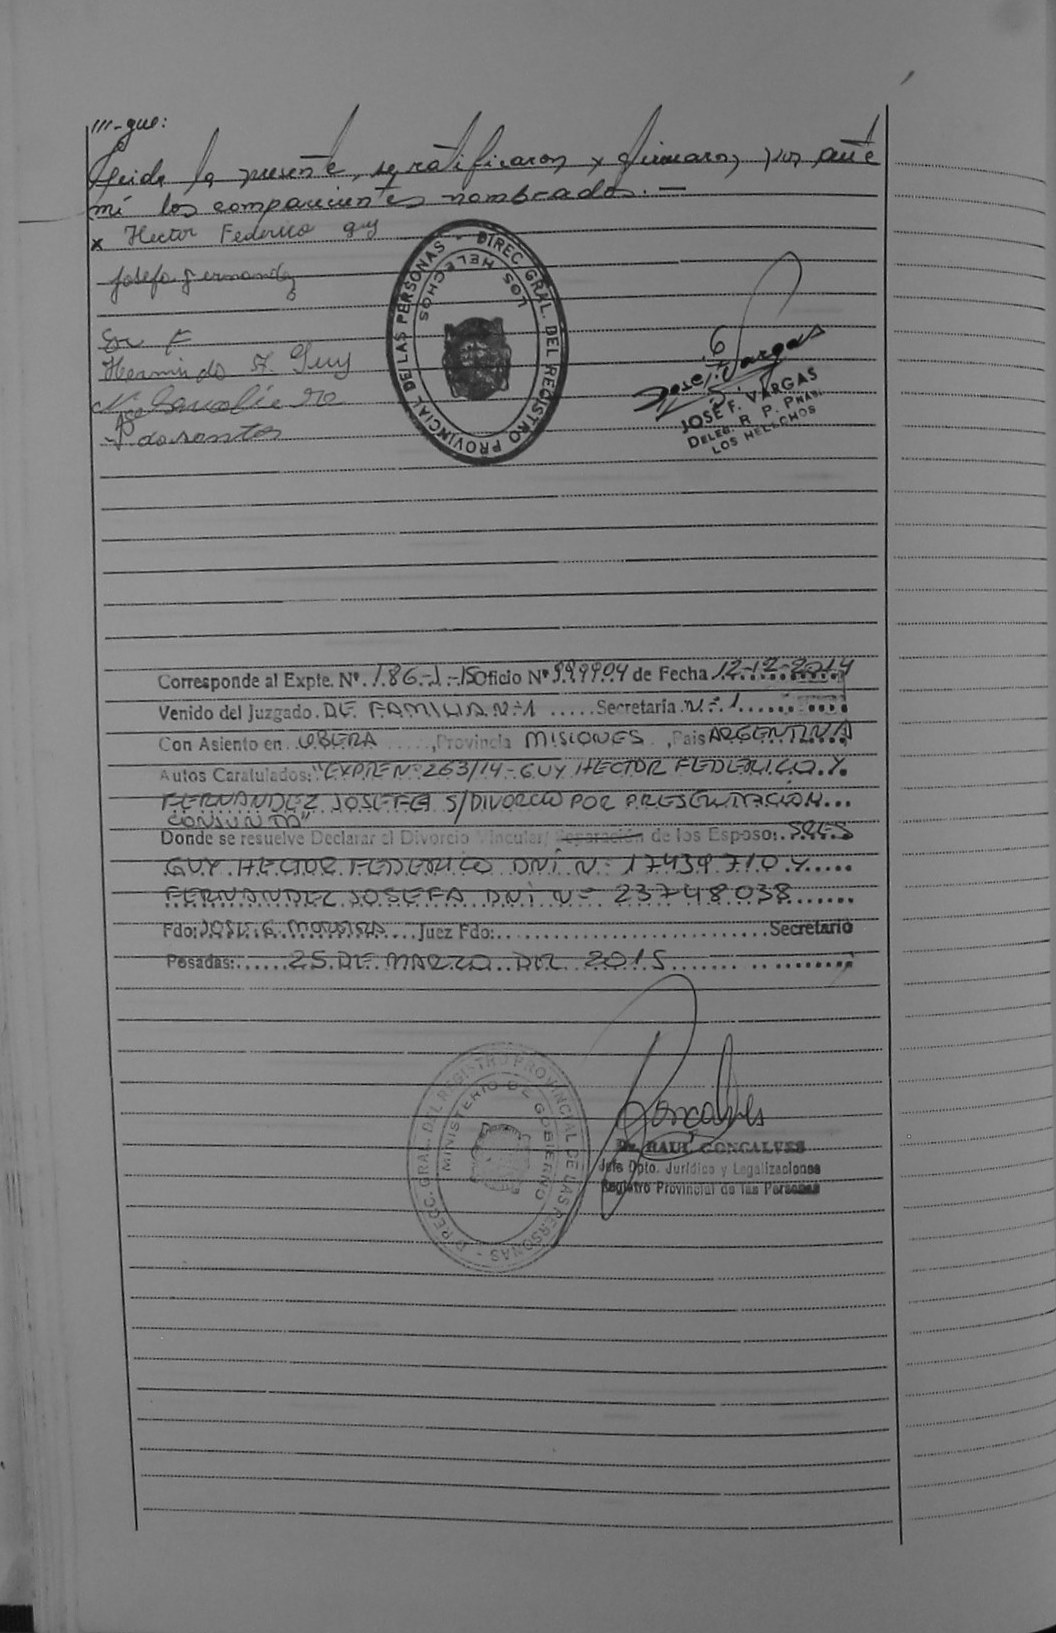 ///-gue:
Leida la presente, se ratificaron y firmaron, por ante
mí los comparecientes nombrados.-
x Hector Federico Guy
Josefa Fernandez
Herminda F. Guy
P dosantos
DIREC. GRAL. DEL REGISTRO PROVINCIAL DE LAS PERSONAS -
LOS HELECHOS
JOSE F. VARGAS
DELEG. R. P. Pnas.
LOS HELECHOS
Corresponde al Expte. Nº. 186.-1.-15 Oficio Nº 999904 de Fecha 12-12-2014
Venido del Juzgado. DE FAMILIA N-1 ..... Secretaria N.-1
Con Asiento en OBERA ....., Provincia MISIONES , Pais ARGENTINA
Autos Caratulados: "EXPTE N- 263/14 - GUY HECTOR FEDERICO Y
FERNANDEZ JOSEFA S/DIVORCIO POR PRESENTACION...
CONJUNTA"
Donde se resuelve Declarar el Divorcio Vincular, Separación de los Esposo: SRES
GUY HECTOR FEDERICO DNI N- 17439710 Y.....
FERNANDEZ JOSEFA DNI N- 23748038.......
Fdo: JOSE G. MOREIRA .... Juez Fdo: .......................... Secretario
Posadas: ..... 25 DE MARZO DEL 2015 .......
DIRECC. GRAL. DEL REGISTRO PROVINCIAL DE LAS PERSONAS -
MINISTERIO DE GOBIERNO
Dr. RAUL GONCALVES
Jefe Dpto. Jurídico y Legalizaciones
Registro Provincial de las Personas